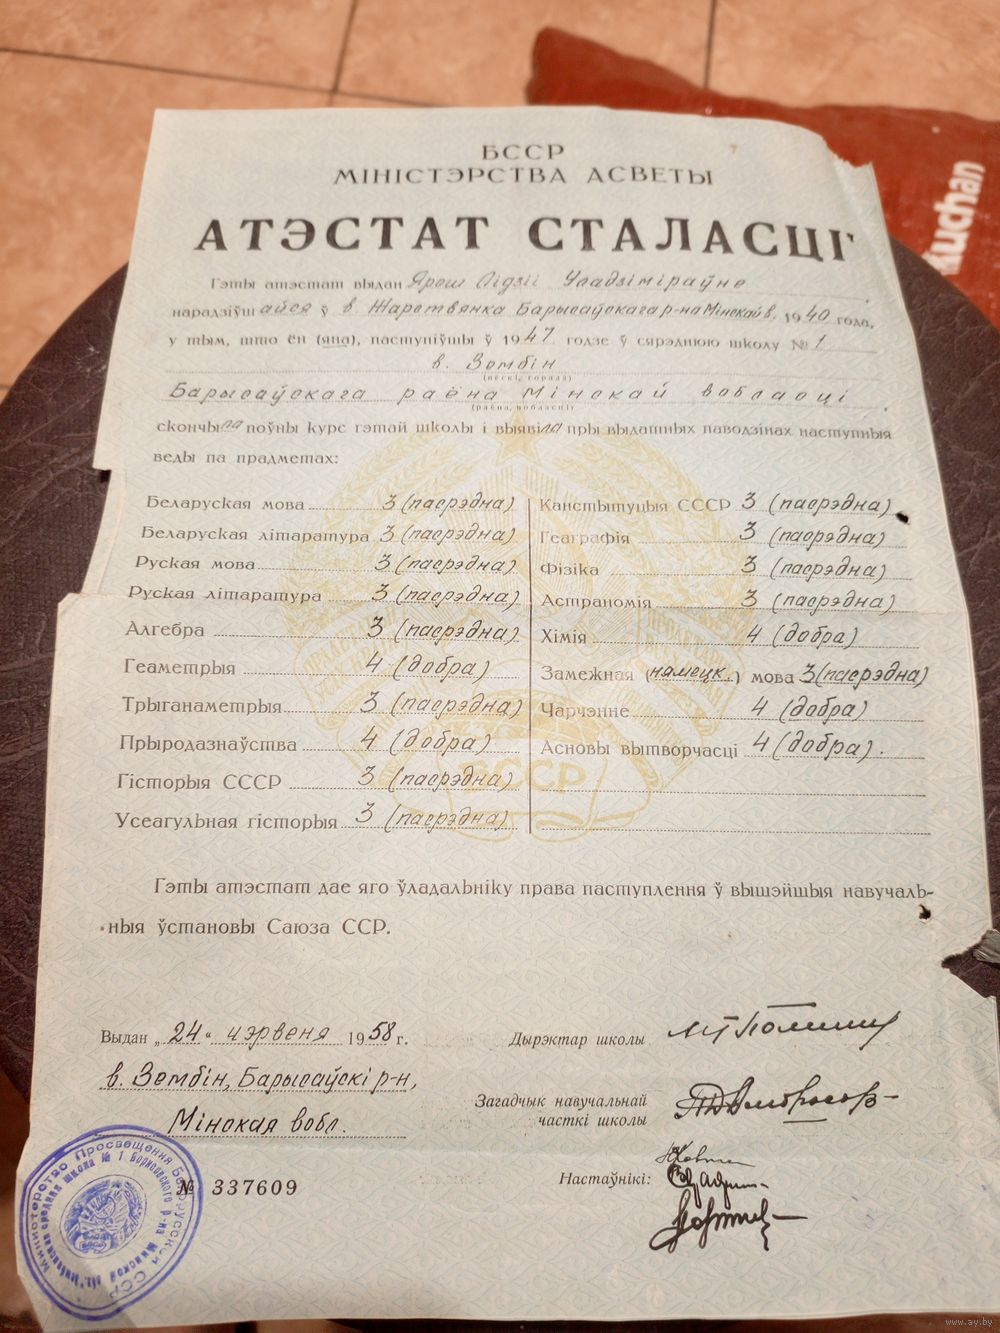 БССР
МІНІСТЭРСТВА АСВЕТЫ
АТЭСТАТ СТАЛАСЦІ
Гэты атэстат выдан Ярош Лідзіі Уладзіміраўне
нарадзіўшайся ў в. Жартвянка Барысаўскага р-на Мінскай в. 1940 года,
у тым, што ён (яна), паступіўшы ў 1947 годзе ў сярэднюю школу № 1
в. Зембін
Барысаўскага раёна Мінскай вобласці
(раёна, вобласці)
скончыла поўны курс гэтай школы і выявіла пры выдатных паводзінах наступныя
веды па прадметах:
Беларуская мова 3 (пасрэдна)
Беларуская літаратура 3 (пасрэдна)
Руская мова 3 (пасрэдна)
Руская літаратура 3 (пасрэдна)
Алгебра 3 (пасрэдна)
Геаметрыя 4 (добра)
Трыганаметрыя 3 (пасрэдна)
Прыродазнаўства 4 (добра)
Гісторыя СССР 3 (пасрэдна)
Усеагульная гісторыя 3 (пасрэдна)
Канстытуцыя СССР 3 (пасрэдна)
Геаграфія 3 (пасрэдна)
Фізіка 3 (пасрэдна)
Астраномія 3 (пасрэдна)
Хімія 4 (добра)
Замежная (нямецк.) мова 3 (пасрэдна)
Чарчэнне 4 (добра)
Асновы вытворчасці 4 (добра).
БССР
Гэты атэстат дае яго ўладальніку права паступлення ў вышэйшыя навучаль-
ныя ўстановы Саюза ССР.
Выдан „24" чэрвеня 1958 г.
в. Зембін, Барысаўскі р-н,
Мінская вобл.
Дырэктар школы
Загадчык навучальнай
часткі школы
Настаўнікі:
№ 337609
Министерство Просвещения Белорусской ССР
средняя школа № 1 Борисовского р-на Минской обл.
Auchan
www.ay.by